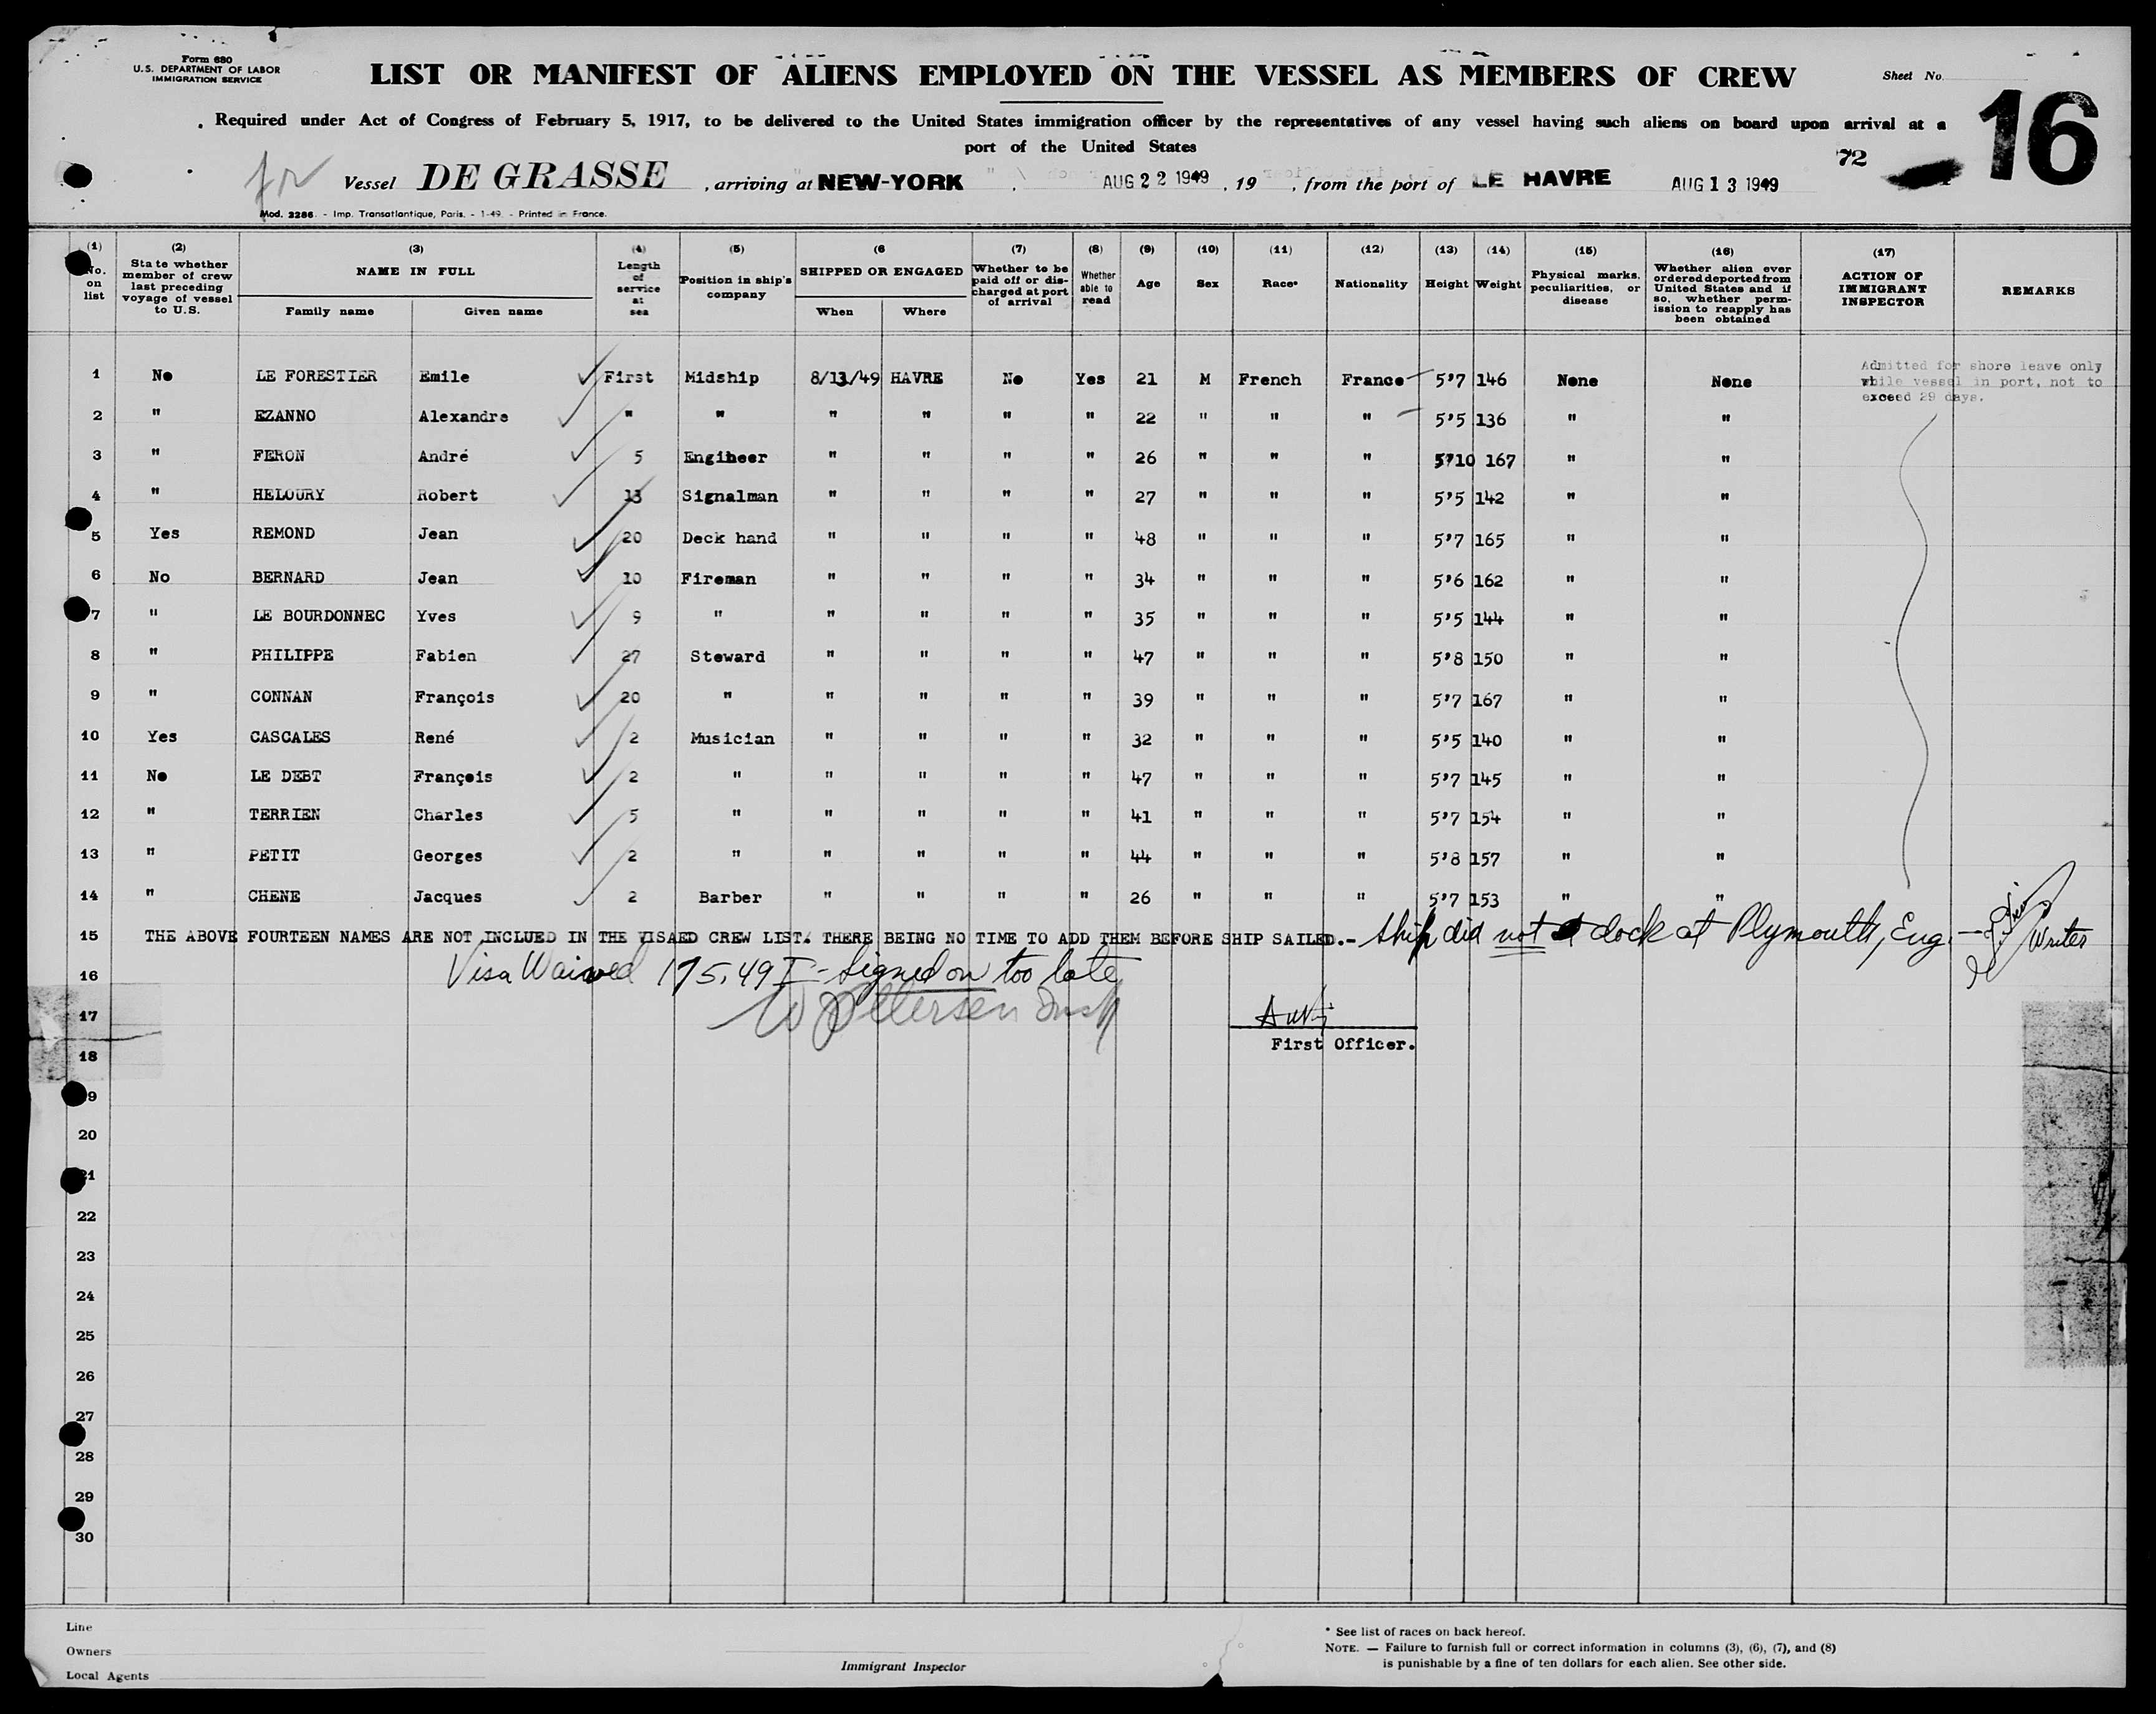 Form 680
U.S. DEPARTMENT OF LABOR
IMMIGRATION SERVICE
LIST OR MANIFEST OF ALIENS EMPLOYED ON THE VESSEL AS MEMBERS OF CREW
Sheet No.
16
Required under Act of Congress of February 5, 1917, to be delivered to the United States immigration officer by the representatives of any vessel having such aliens on board upon arrival at a
port of the United States
72
Vessel DE GRASSE , arriving at NEW-YORK AUG 22 1949 , 19 , from the port of LE HAVRE AUG 13 1949
Mod. 2286. - Imp. Transatlantique, Paris. - 1-49. - Printed in France.
(1) No. on list
(2) State whether member of crew last preceding voyage of vessel to U.S.
(3) NAME IN FULL Family name Given name
(4) Length of service at sea
(5) Position in ship's company
(6 SHIPPED OR ENGAGED When Where
(7) Whether to be paid off or discharged at port of arrival
(8) Whether able to read
(9) Age
(10) Sex
(11) Race*
(12) Nationality
(13) Height
(14) Weight
(15) Physical marks, peculiarities, or disease
(16) Whether alien ever ordered deported from United States and if so, whether permission to reapply has been obtained
(17) ACTION OF IMMIGRANT INSPECTOR
REMARKS
1 No LE FORESTIER Emile First Midship 8/13/49 HAVRE No Yes 21 M French France 5'7 146 None None
Admitted for shore leave only
while vessel in port, not to
exceed 29 days.
2 " EZANNO Alexandre " " " " " " 22 " " " 5'5 136 " "
3 " FERON André 5 Engineer " " " " 26 " " " 5'10 167 " "
4 " HELOURY Robert 13 Signalman " " " " 27 " " " 5'5 142 " "
5 Yes REMOND Jean 20 Deck hand " " " " 48 " " " 5'7 165 " "
6 No BERNARD Jean 10 Fireman " " " " 34 " " " 5'6 162 " "
7 " LE BOURDONNEC Yves 9 " " " " " 35 " " " 5'5 144 " "
8 " PHILIPPE Fabien 27 Steward " " " " 47 " " " 5'8 150 " "
9 " CONNAN François 20 " " " " " 39 " " " 5'7 167 " "
10 Yes CASCALES René 2 Musician " " " " 32 " " " 5'5 140 " "
11 No LE DEBT François 2 " " " " " 47 " " " 5'7 145 " "
12 " TERRIEN Charles 5 " " " " " 41 " " " 5'7 154 " "
13 " PETIT Georges 2 " " " " " 44 " " " 5'8 157 " "
14 " CHENE Jacques 2 Barber " " " " 26 " " " 5'7 153 " "
15 THE ABOVE FOURTEEN NAMES ARE NOT INCLUED IN THE VISAED CREW LIST. THERE BEING NO TIME TO ADD THEM BEFORE SHIP SAILED.- Ship did not dock at Plymouth, Eng. Writer
16 Visa Waived 175.49 I - Signed on too late
17
First Officer.
18
19
20
21
22
23
24
25
26
27
28
29
30
Line
Owners
Local Agents
Immigrant Inspector
* See list of races on back hereof.
NOTE. — Failure to furnish full or correct information in columns (3), (6), (7), and (8)
is punishable by a fine of ten dollars for each alien. See other side.